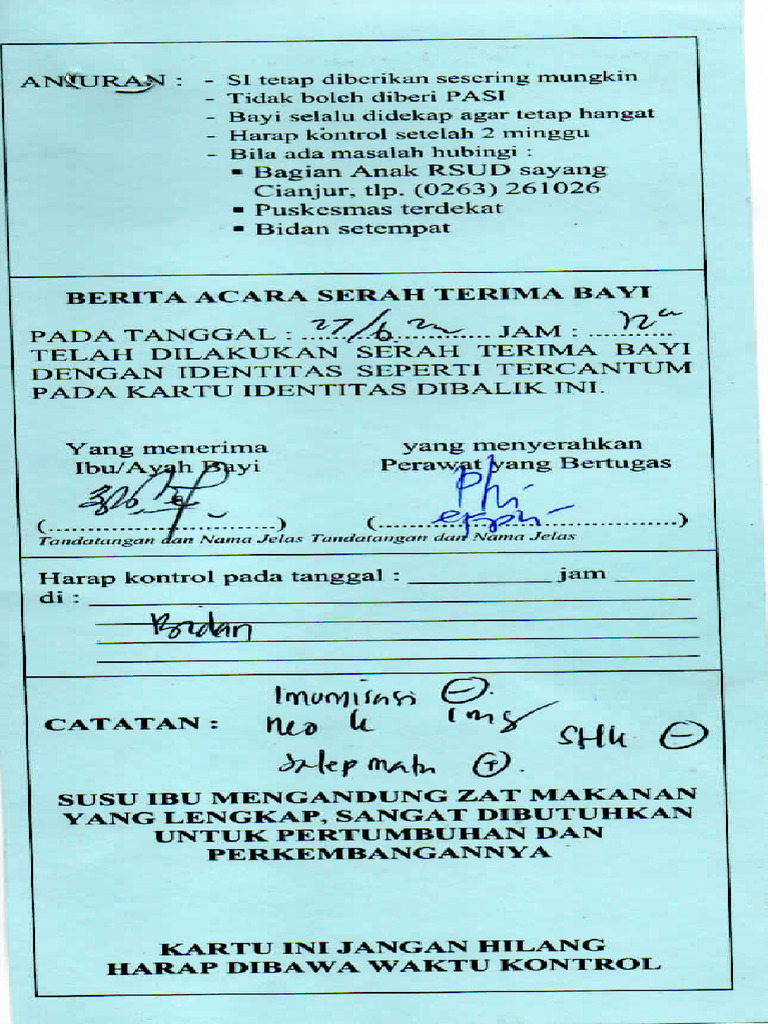 ANJURAN : - SI tetap diberikan sesering mungkin
- Tidak boleh diberi PASI
- Bayi selalu didekap agar tetap hangat
- Harap kontrol setelah 2 minggu
- Bila ada masalah hubingi :
▪ Bagian Anak RSUD sayang
Cianjur, tlp. (0263) 261026
▪ Puskesmas terdekat
▪ Bidan setempat
BERITA ACARA SERAH TERIMA BAYI
PADA TANGGAL : 27/6 22 JAM :
TELAH DILAKUKAN SERAH TERIMA BAYI
DENGAN IDENTITAS SEPERTI TERCANTUM
PADA KARTU IDENTITAS DIBALIK INI.
Yang menerima yang menyerahkan
Ibu/Ayah Bayi Perawat yang Bertugas
(..............................) (..............................)
Tandatangan dan Nama Jelas Tandatangan dan Nama Jelas
Harap kontrol pada tanggal : ____________ jam _______
di :
Bidan
Imunisasi (-)
CATATAN : neo k 1mg SHK (-)
Salep mata (+).
SUSU IBU MENGANDUNG ZAT MAKANAN
YANG LENGKAP, SANGAT DIBUTUHKAN
UNTUK PERTUMBUHAN DAN
PERKEMBANGANNYA
KARTU INI JANGAN HILANG
HARAP DIBAWA WAKTU KONTROL